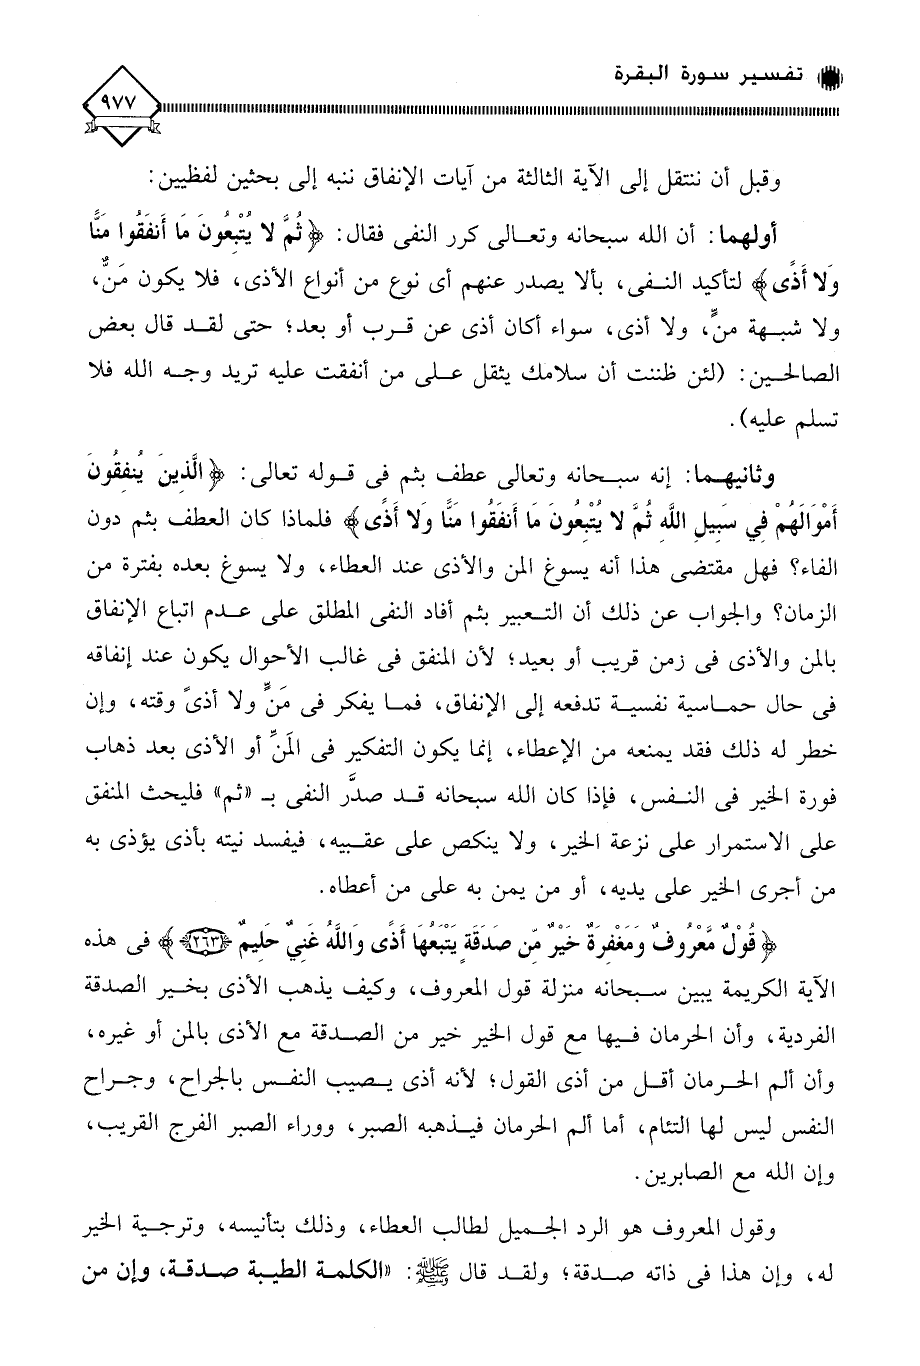 تفسير سورة البقرة
٩٧٧
وقبل أن ننتقل إلى الآية الثالثة من آيات الإنفاق ننبه إلى بحثين لفظيين:
أولهما: أن الله سبحانه وتعالى كرر النفى فقال: ﴿ثُمَّ لا يُتْبِعُونَ مَا أَنفَقُوا مَنًّا
وَلا أَذًى﴾ لتأكيد النفى، بألا يصدر عنهم أى نوع من أنواع الأذى، فلا يكون مَنٌّ،
ولا شبهة منٍّ، ولا أذى، سواء أكان أذى عن قرب أو بعد؛ حتى لقد قال بعض
الصالحين: (لئن ظننت أن سلامك يثقل على من أنفقت عليه تريد وجه الله فلا
تسلم عليه).
وثانيهما: إنه سبحانه وتعالى عطف بثم فى قوله تعالى: ﴿الَّذِينَ يُنفِقُونَ
أَمْوَالَهُمْ فِي سَبِيلِ اللَّهِ ثُمَّ لا يُتْبِعُونَ مَا أَنفَقُوا مَنًّا وَلا أَذًى﴾ فلماذا كان العطف بثم دون
الفاء؟ فهل مقتضى هذا أنه يسوغ المن والأذى عند العطاء، ولا يسوغ بعده بفترة من
الزمان؟ والجواب عن ذلك أن التعبير بثم أفاد النفى المطلق على عدم اتباع الإنفاق
بالمن والأذى فى زمن قريب أو بعيد؛ لأن المنفق فى غالب الأحوال يكون عند إنفاقه
فى حال حماسية نفسية تدفعه إلى الإنفاق، فما يفكر فى مَنٍّ ولا أذىً وقته، وإن
خطر له ذلك فقد يمنعه من الإعطاء، إنما يكون التفكير فى المَنِّ أو الأذى بعد ذهاب
فورة الخير فى النفس، فإذا كان الله سبحانه قد صدَّر النفى بـ «ثم» فليحث المنفق
على الاستمرار على نزعة الخير، ولا ينكص على عقبيه، فيفسد نيته بأذى يؤذى به
من أجرى الخير على يديه، أو من يمن به على من أعطاه.
﴿قَوْلٌ مَّعْرُوفٌ وَمَغْفِرَةٌ خَيْرٌ مِّن صَدَقَةٍ يَتْبَعُهَا أَذًى وَاللَّهُ غَنِيٌّ حَلِيمٌ ﴿٢٦٣﴾﴾ فى هذه
الآية الكريمة يبين سبحانه منزلة قول المعروف، وكيف يذهب الأذى بخير الصدقة
الفردية، وأن الحرمان فيها مع قول الخير خير من الصدقة مع الأذى بالمن أو غيره،
وأن ألم الحرمان أقل من أذى القول؛ لأنه أذى يصيب النفس بالجراح، وجراح
النفس ليس لها التئام، أما ألم الحرمان فيذهبه الصبر، ووراء الصبر الفرج القريب،
وإن الله مع الصابرين.
وقول المعروف هو الرد الجميل لطالب العطاء، وذلك بتأنيسه، وترجية الخير
له، وإن هذا فى ذاته صدقة؛ ولقد قال ﷺ: «الكلمة الطيبة صدقة، وإن من